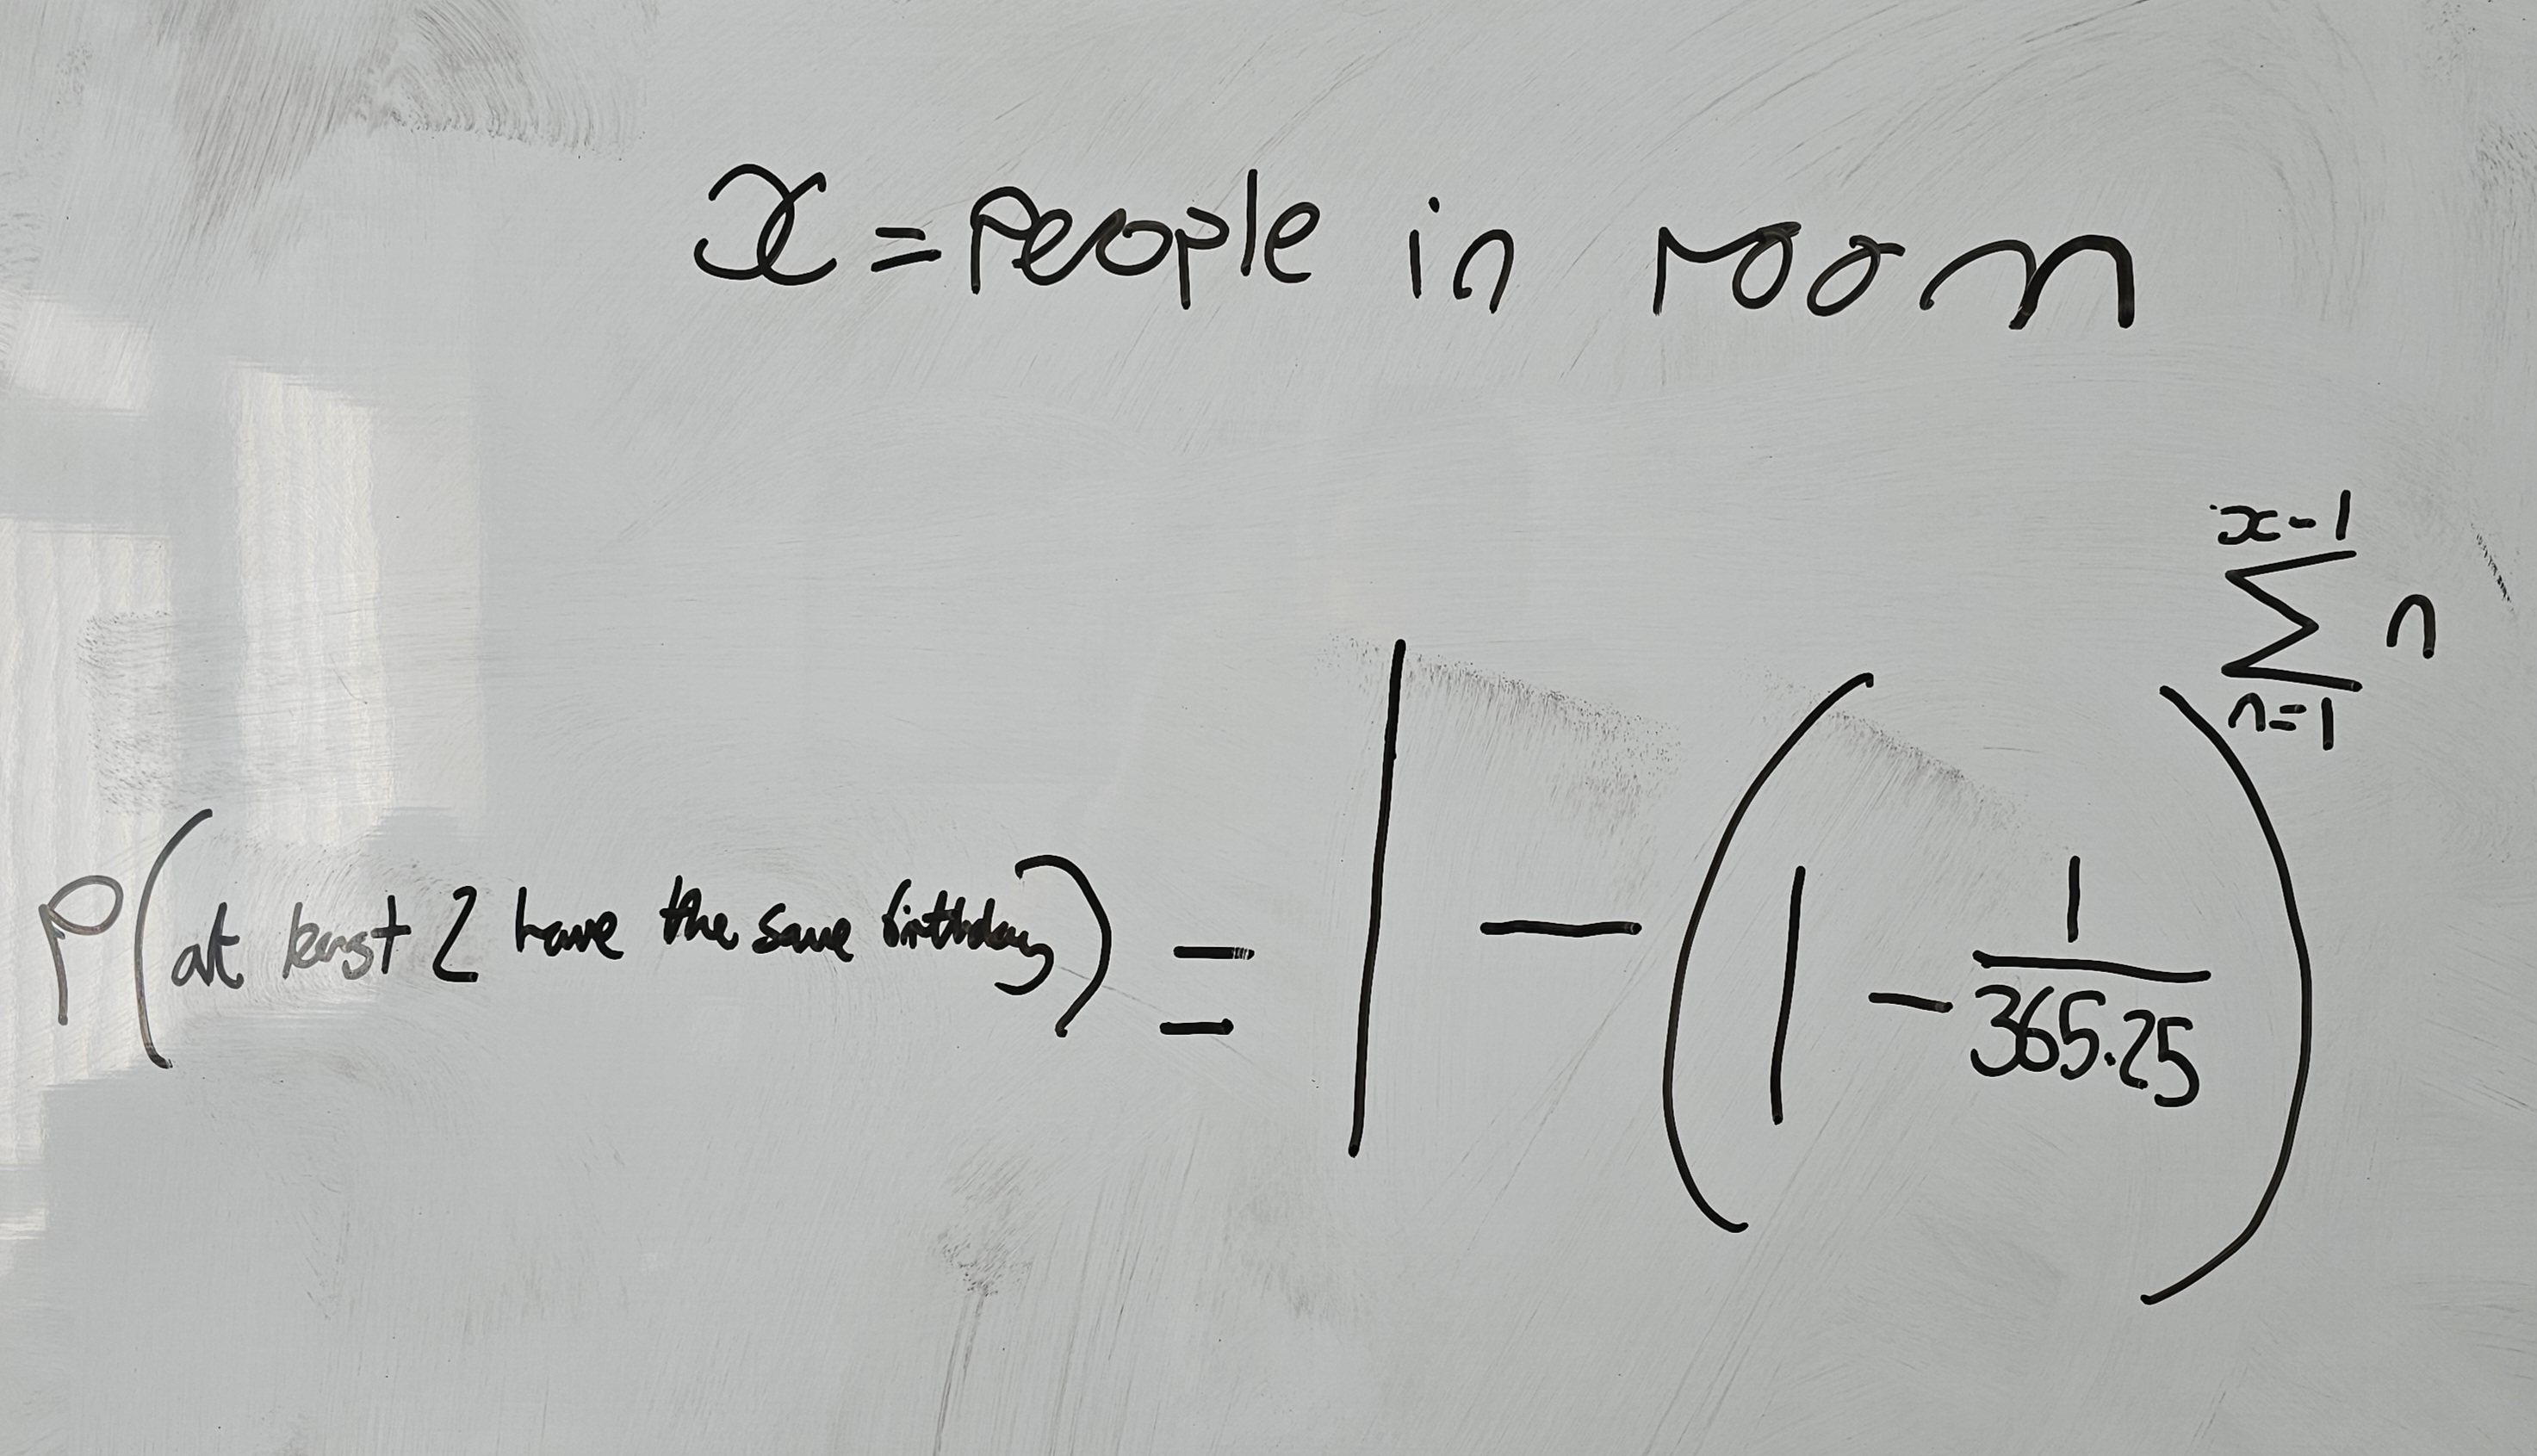 x = People in room
P(at least 2 have the same birthday) = 1 - (1 - 1/365.25)^(∑_{n=1}^{x-1} n)